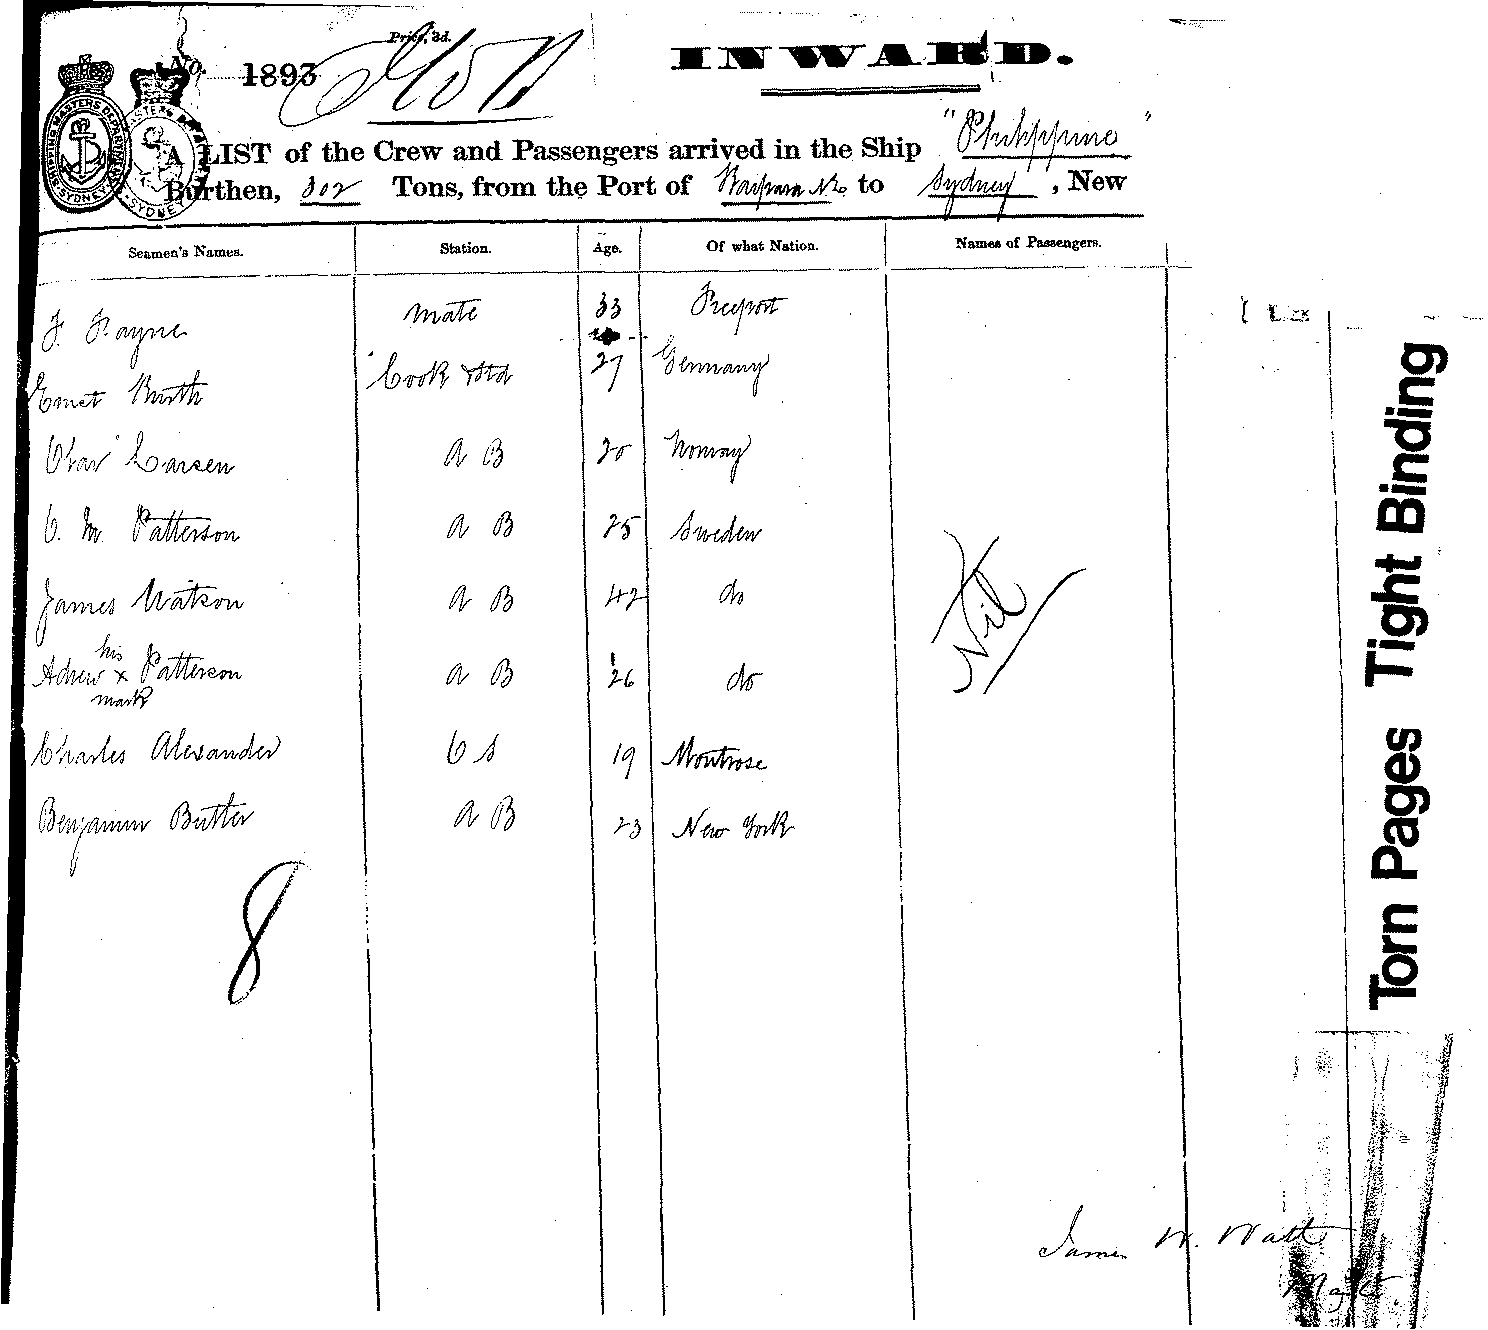 Price, 3d.
No. 1893
INWARD.
A LIST of the Crew and Passengers arrived in the Ship "Philippine"
Burthen, 302 Tons, from the Port of Kaipara NZ to Sydney, New
SHIPPING MASTERS DEPARTMENT SYDNEY
Seamen's Names. Station. Age. Of what Nation. Names of Passengers.
F. Payne mate 33 Freeport
Ernst Cook & Std 27 Germany
Olav Larsen A B 20 Norway
O. M. Patterson A B 25 Sweden
James Watson A B 42 do
his
Adrew x Patterson A B 26 do
mark
Nil
Charles Alexander O S 19 Montrose
Benjamin Butler A B 23 New York
8
James W. Watt
Master
Torn Pages Tight Binding